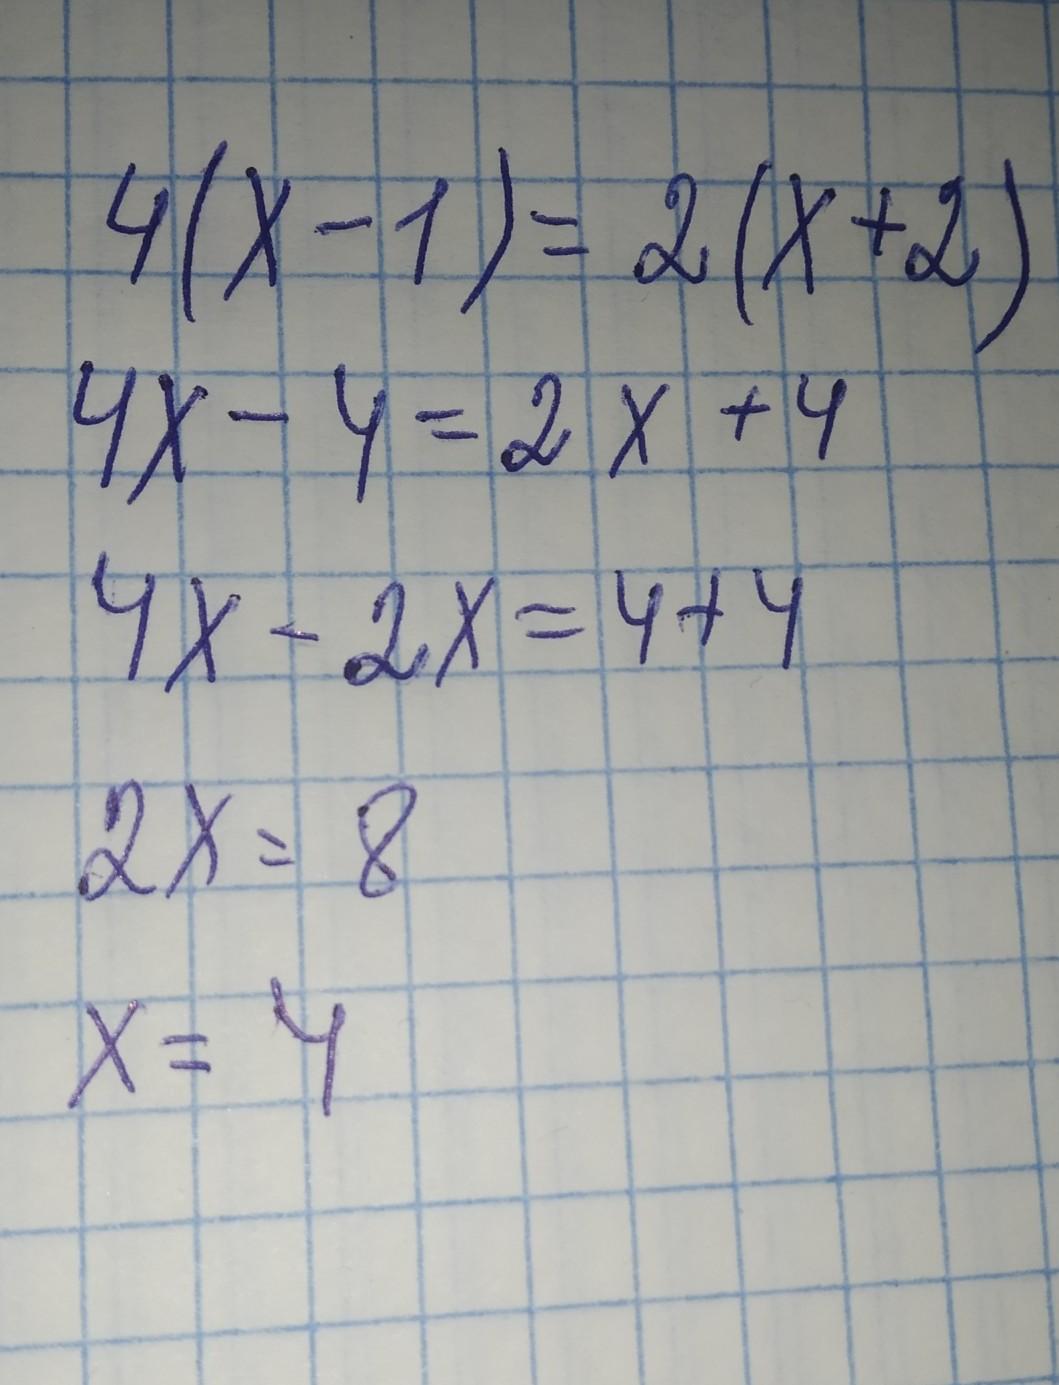 4(x-1)=2(x+2)
4x-4=2x+4
4x-2x=4+4
2x=8
x=4